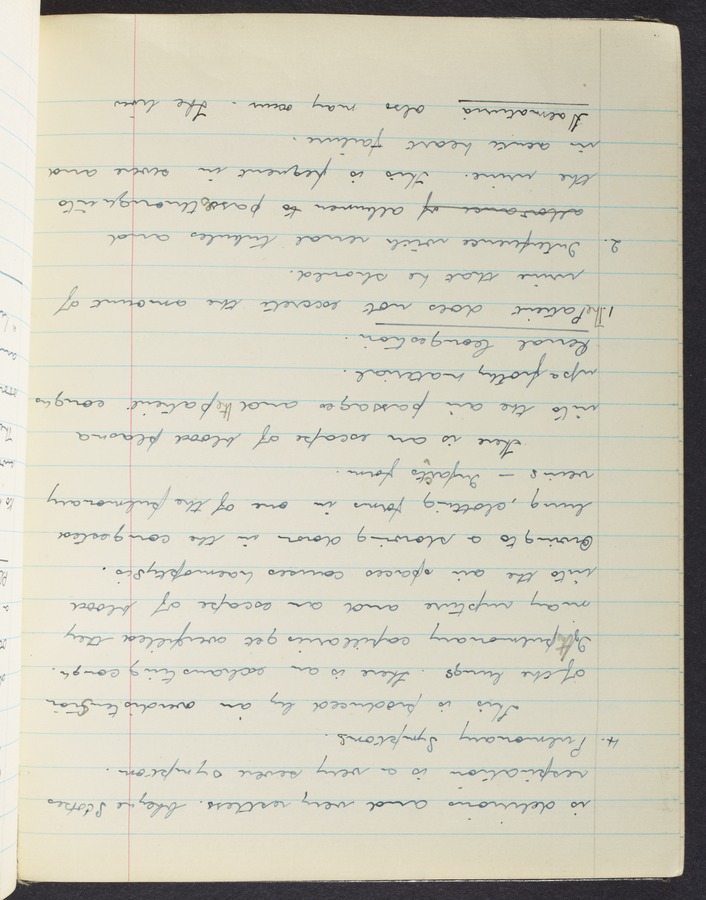 is delirious and very restless. Cheyne Stokes
respiration is a very severe symptom.
4. Pulmonary Symptoms.
This is produced by an overdistention
of the lungs. There is an exhausting cough.
If the pulmonary capillaries get overfilled they
may rupture and an escape of blood
into the air spaces causes haemoptysis.
Owing to a slowing down in the congested
lung, clotting forms in one of the pulmonary
veins – Infarcts form.
There is an escape of blood plasma
into the air passages and the patient coughs
up a frothy material.
Renal Congestion.
1. The Patient does not excrete the amount of
urine that he should.
2. Interference with renal tubules and
allowance of albumen to pass through into
the urine. This is frequent in severe and
in acute heart failure.
Haematuria also may occur. The liver